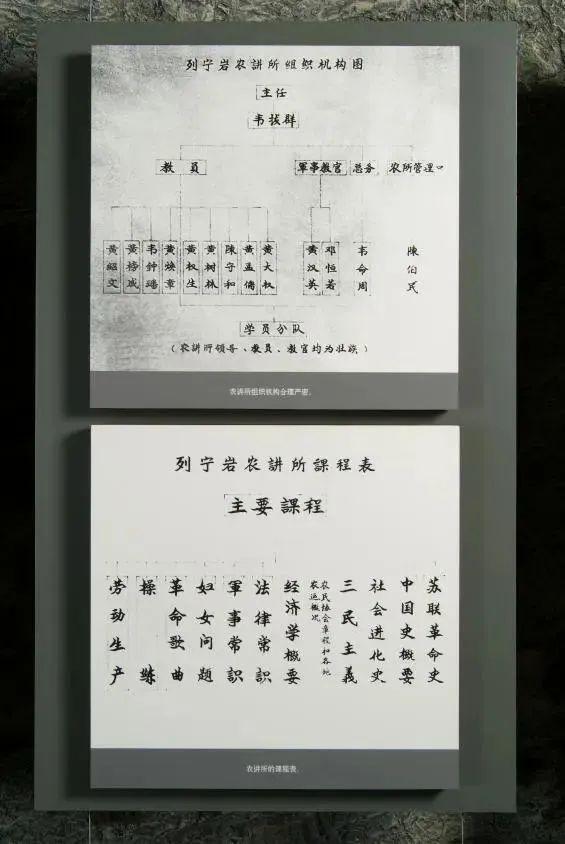 列宁岩农講所组织机构图
主任
韦拔群
教員
軍事教官
总务
农所管理
黄昭文
黄榜成
韦钟璠
黄焕章
黄权生
黄树林
陳守和
黄孟儒
黄大权
黄汉英
邓恒若
韦命周
陳伯民
学员分队
(农講所领导、教员、教官均为壮族)
农讲所组织机构合理严密。
列宁岩农講所課程表
主要課程
苏联革命史
中国史概要
社会进化史
三民主義
农民协会章程和各地
农运概况
经济学概要
法律常識
軍事常識
妇女问题
革命歌曲
操练
劳动生产
农讲所的课程表。